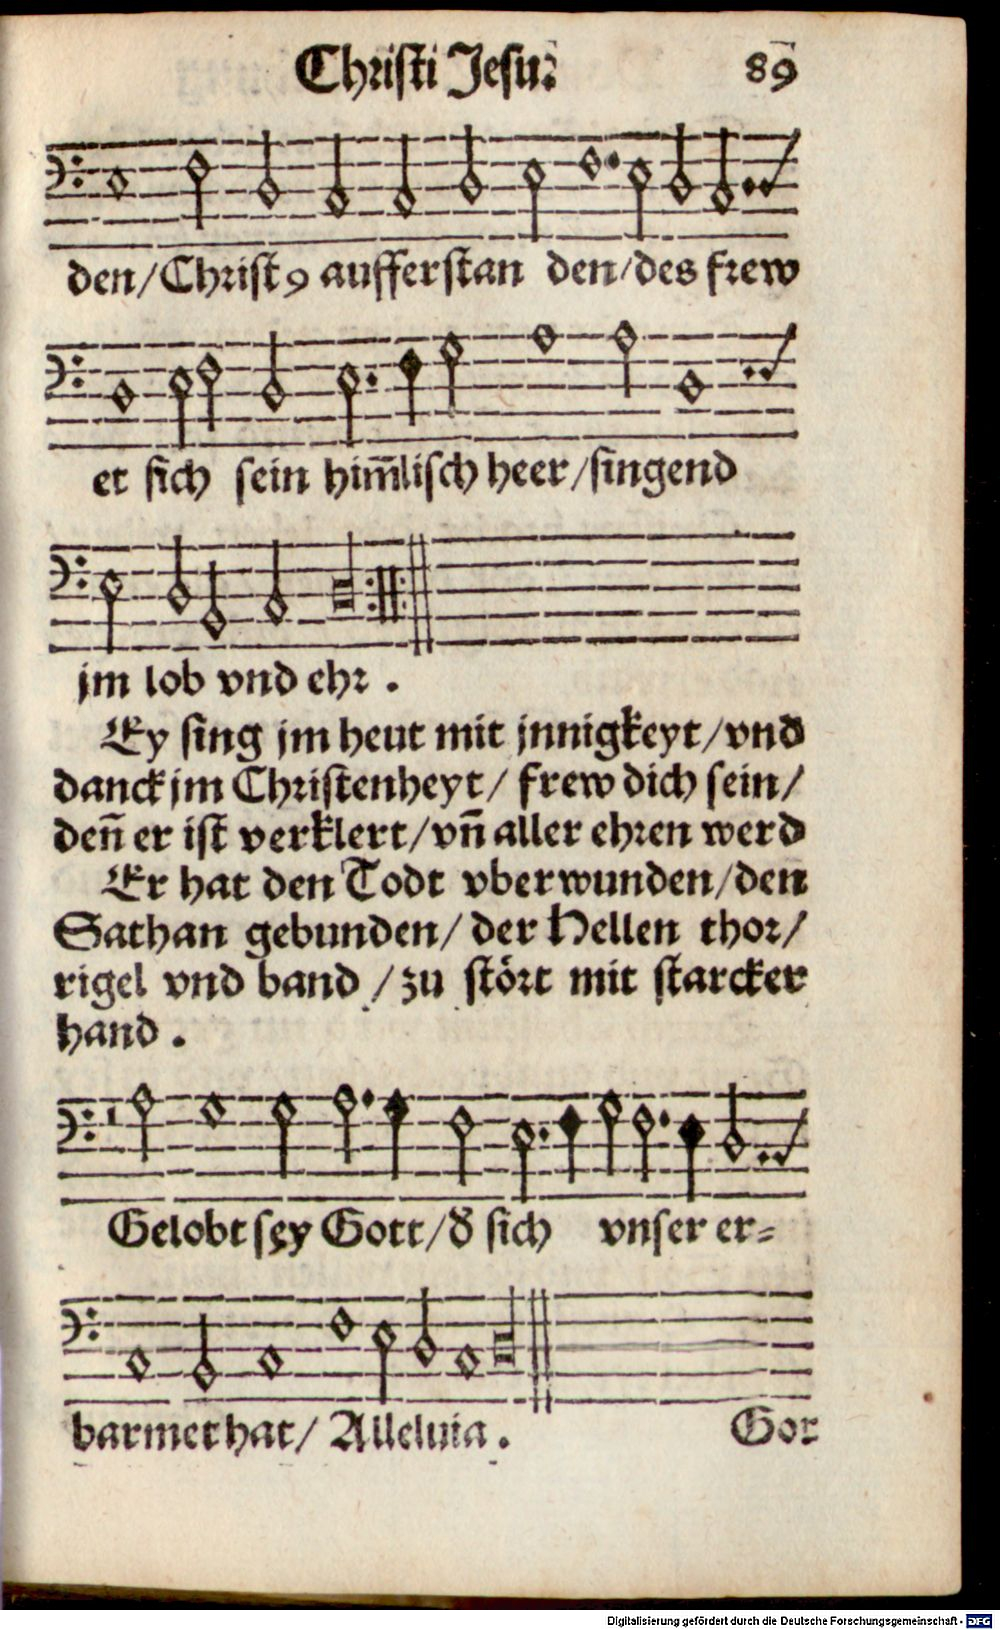 Christi Jesu. 89
den/Christꝰ aufferstan den/des frew
et sich sein him̄lisch heer/singend
jm lob vnd ehr.
Ey sing jm heut mit jnnigkeyt/vnd
danck jm Christenheyt/ frew dich sein/
den̄ er ist verklert/vn̄ aller ehren werd
Er hat den Todt vberwunden/den
Sathan gebunden/ der Hellen thor/
rigel vnd band /zu stört mit starcker
hand.
Gelobt sey Gott/d̄ sich vnser er=
barmet hat/ Alleluia.
Gor
Digitalisierung gefördert durch die Deutsche Forschungsgemeinschaft - DFG